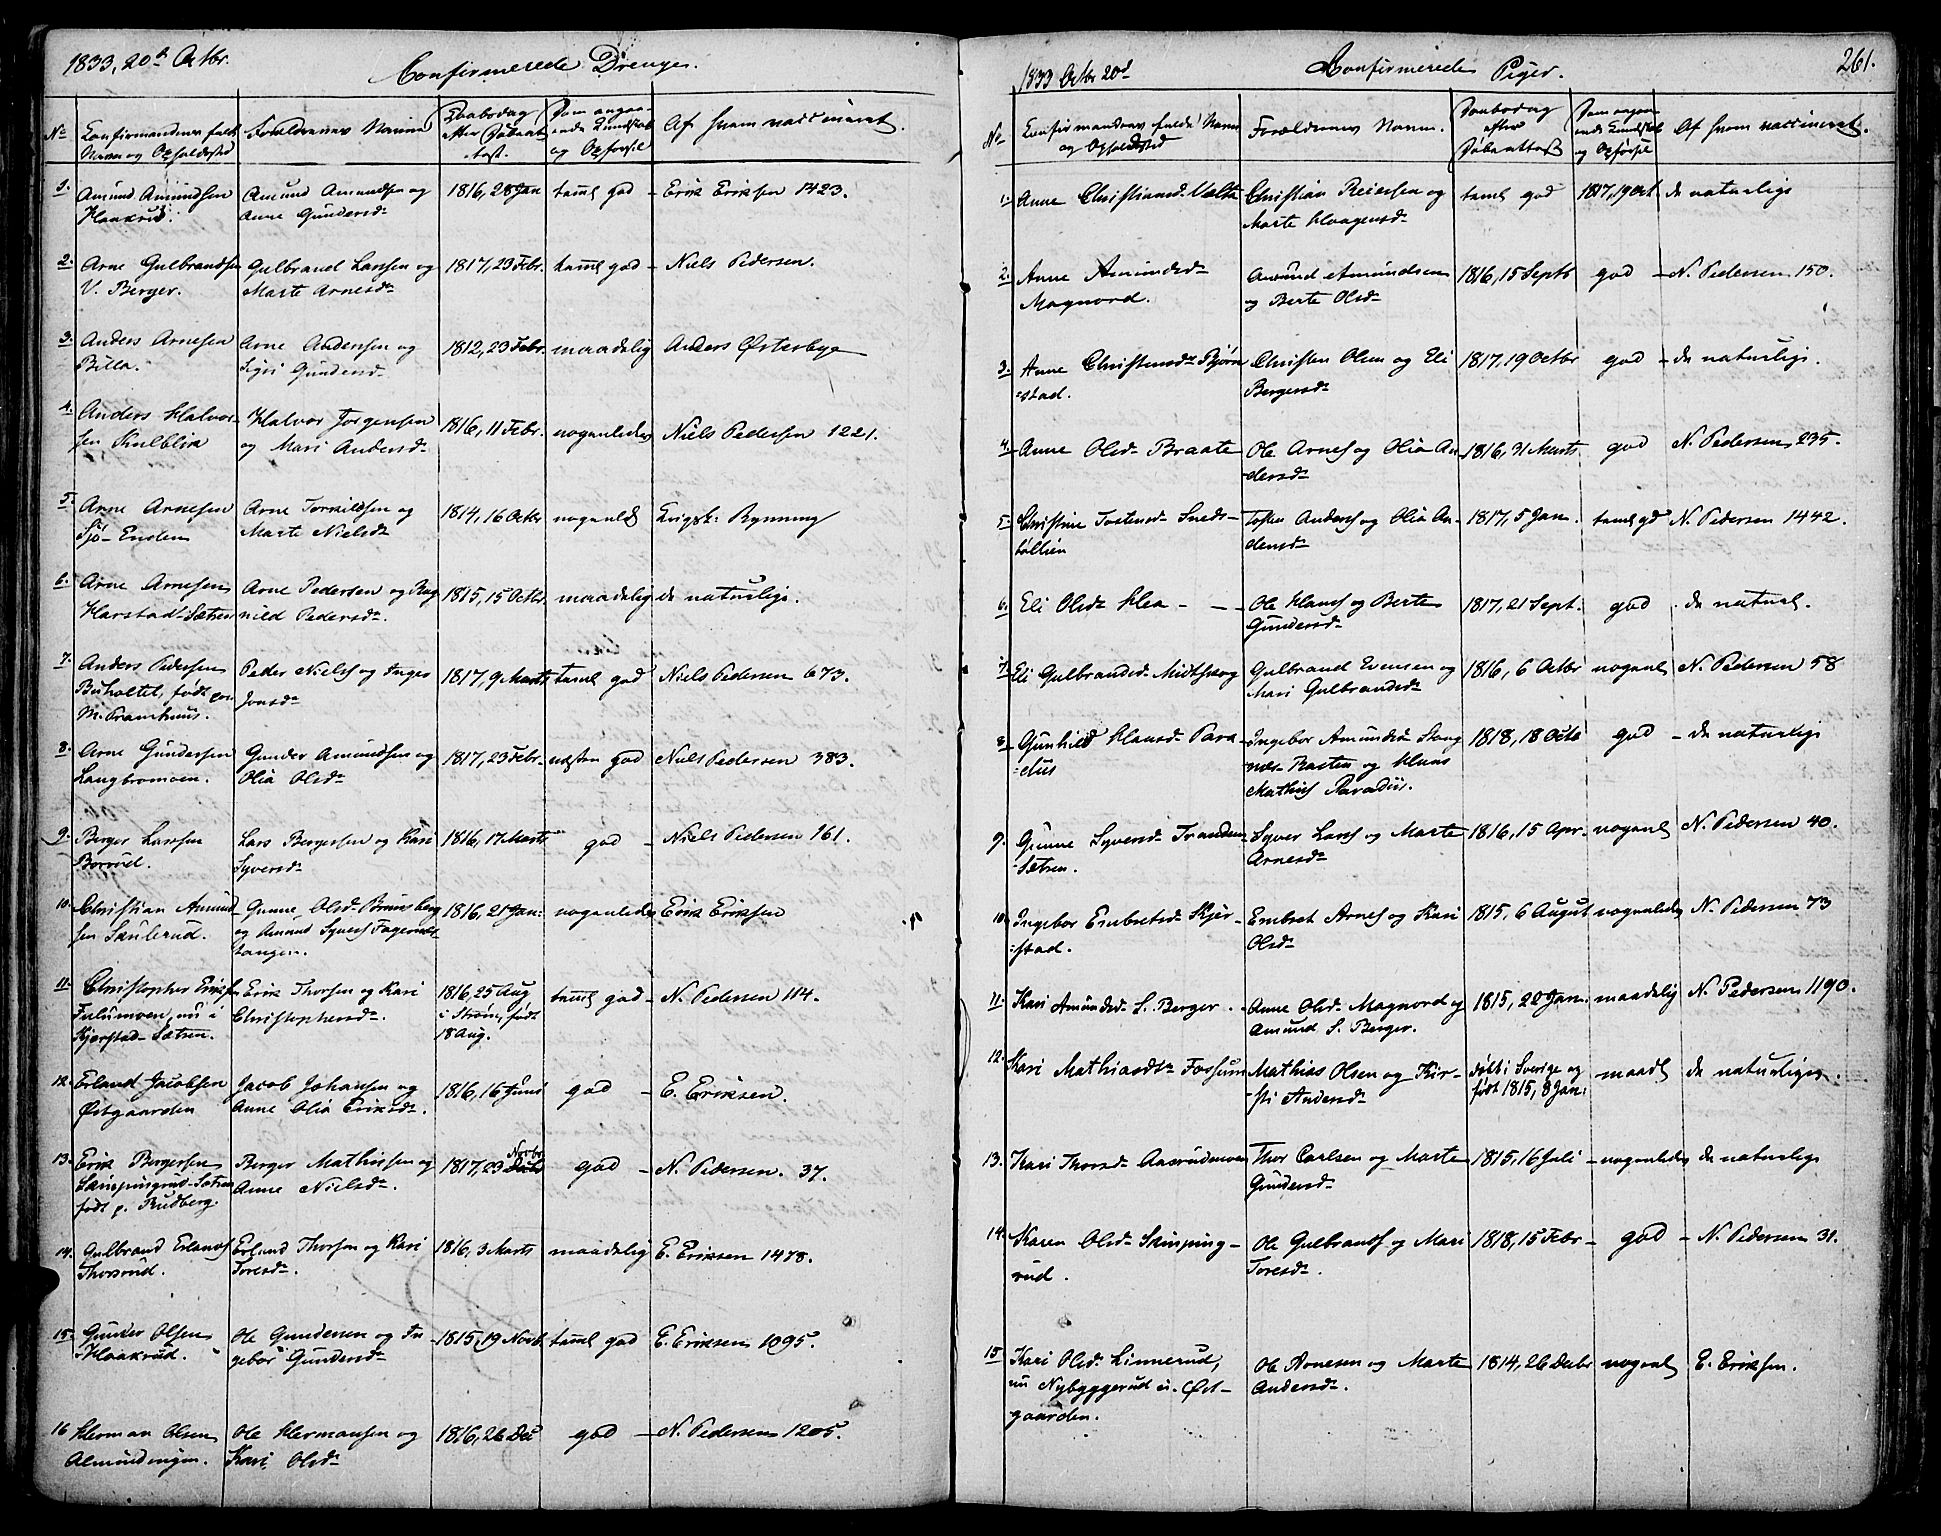 1833, 20d Octbr.
Confirmerede Drenge.
No
Confirmandens fulde
Navn og Opholdssted
Forældrenes Navne
Daabsdag
efter Døbeat-
test.
Dom angaa-
ende Kundskab
og Opførsel
Af hvem vaccineret.
1. Amund Amundsen
Haakrud.
Amund Amundsen og
Anne Gundersd.
1816, 28 Jan
taml. god -
Erik Eriksen 1423.
2. Arne Gulbrandsen
V. Berger.
Gulbrand Larssen og
Marte Arnesdr
1817, 23 Febr.
taml god -
Niels Pedersen.
3. Anders Arnesen
Billa.
Arne Andersen og
Sigri Gundersd.
1812, 23 Febr.
maadelig
Anders Østerbye
4. Anders Halvor-
sen Kulblik
Halvor Jørgensen
og Mari Andersdr
1816, 11 Febr.
nogenledes
Niels Pedersen 1221.
5. Arne Arnesen
Sjö-Enden
Arne Torkildsen og
Marte Nielsdr
1814, 16 Octbr
nogenlds
Rynning
6. Arne Arnesen
Harstad-Sætren
Arne Pedersen og Rag
nild Pedersdr.
1815, 15 Octbr.
maadelig
de naturlige.
7. Anders Pedersen
Buholtet, født paa
M. Framhuus.
Peder Nielss og Inger
Jonsdr
1817, 9 Marts
taml god
Niels Pedersen 673.
8. Arne Gundersen
Langbromoen.
Gunder Amundsen og
Olia Olsdr
1817, 23 Febr.
næsten god
Niels Pedersen 383.
9. Berger Larssen
Borrød.
Lars Bergersen og Kari
Syversdr
1816, 17 Marts
god -
Niels Pedersen 161.
10. Christian Amund-
sen Skulerud.
Gunne Olsdr Brunsberg
og Amund Syverss Fagernes-
tangen.
1816, 21 Jan.
nogenledes
Erik Eriksen
11. Christopher Eriksen
Fulumoen, nu i
Kjerstad-Sætren.
Erik Thorsen og Kari
Christophersdr.
1816, 25 Aug
i Strøm, født
18 Aug.
taml god -
N. Pedersen 114.
12. Erland Jacobsen
Østgaarden
Jacob Johansen og
Anne Olia Eriksdr.
1816, 16 Juni
god -
E. Eriksen.
13. Erik Bergersen
Skinpingrud-Sætren
født p. Rudberg
Berger Mathissen og
Anne Nielsdr.
1817, 23 Novbr
god -
N. Pedersen. 37.
14. Gulbrand Erlands
Thorsrud.
Erland Thorsen og Kari
Toresdr.
1816, 3 Marts
maadelig
E. Eriksen 1478.
15. Gunder Olsen
Haakrud.
Ole Gundersen og In-
gebor Gundersdr
1815, 19 Novb.
taml god
E. Eriksen 1095.
16 Herman Olsen
Almindingen.
Ole Hermansen og
Kari Olsdr
1816, 26 Dec
god -
N. Pedersen 1205.
1833 Octbr 20d
Confirmerede Piger.
261.
No
Confirmandens fulde Navn
og Opholdssted
Forældrenes Navne.
Daabsdag
efter
Døbeattest
Dom angaa-
ende Kundskab
og Opførsel
Af hvem vaccineret.
1. Anne Christiansdr Vælta
Christian Reiersen og
Marte Haagensdr
taml god
1817, 19 Oct.
de naturlige
2. Anne Amundsdr
Magnord.
Amund Amundsen
og Berte Olsdr
1816, 15 Septr
god -
N. Pedersen 150.
3. Anne Christensdr Bjørn
=stad.
Christen Olsen og Eli
Bergersdr
1817, 19 Octbr
god -
de naturlige.
4. Anne Olsdr Braate
Ole Arness og Olia An-
dersdr
1816, 31 Marts
god
N. Pedersen 235.
5. Christine Tostensdr Sneds-
bøllien
Tosten Anderss og Olia An-
dersdr
1817, 5 Jan.
taml gd
N. Pedersen 1442.
6. Eli Olsdr Hea - -
Ole Hanss og Berte
Gundersdr
1817, 21 Sept.
god .
de natural.
7. Eli Gulbrandsdr Midtskog
Gulbrand Evensen og
Mari Gulbrandsdr
1816, 6 Octbr
nogenl
N. Pedersen 58
8. Gunhild Hansdr Para
=diis
Ingebor Amundsdr Stang
næs-Kasten og Hans
Mathiss Paradiis.
1818, 18 Octb
god -
de naturlige
9. Gunne Syversdr Tranden-
-Sætren.
Syver Larss og Marte
Arnesdr
1816, 15 Apr.
nogenl
N. Pedersen 40.
10. Ingebor Embretsdr Kjer-
=stad.
Embret Arness og Kari
Olsdr
1815, 6 August
nogenledes
N. Pedersen 73
11. Kari Amundsdr S. Berger.
Anne Olsdr Magnord og
Amund S. Berger.
1815, 22 Jan.
maadelig
N. Pedersen 1190.
12. Kari Mathiasdtr Fossum
Mathias Olsen og Kir-
-sti Andersdr
døbt i Sverige og
født 1815, 8 Jan.
maadl
de naturlige.
13. Kari Thorsdr Aaserudmoen
Thor Carlsen og Marte
Gundersdr
1815, 16 Juli
nogenledes
de naturlige
14. Karen Olsdr Skinping-
rud.
Ole Gulbrandss og Mari
Toresdr.
1818, 15 Febr
- god -
N. Pedersen 31.
15 Kari Olsdr Linnerud,
nu Nybyggerud u. Øst-
gaarden.
Ole Arnesen og Marte
Andersdr.
1814, 26 Decbr
nogenl
E. Eriksen.